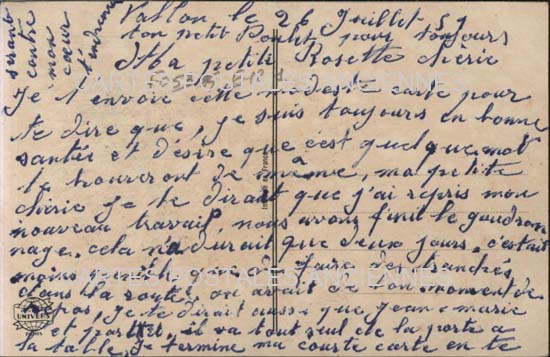 Vallon le 26 Juillet 51
ton petit Poulet pour toujours
Ma petite Rosette chérie
Je t'envoie cette modeste carte pour
te dire que, je suis toujours en bonne
santée et désire que c'est quelque mot
te trouveront de même, ma petite
chérie je te dirait que j'ai repris mon
nouveau travail, nous avons finit le goudron
nage, cela na durait que deux jours, c'était
moins faire des tranchés
dans la route, on avait de bon moment de
repos, Je te dirait aussi que Jean-marie
et il va tout seul de la porte a
la table, Je termine ma courte carte en te
serant
contre
mon
cœur
tendrement
CARTES POSTALES ANCIENNES
CARTES POSTALES ANCIENNES
UNIVERS